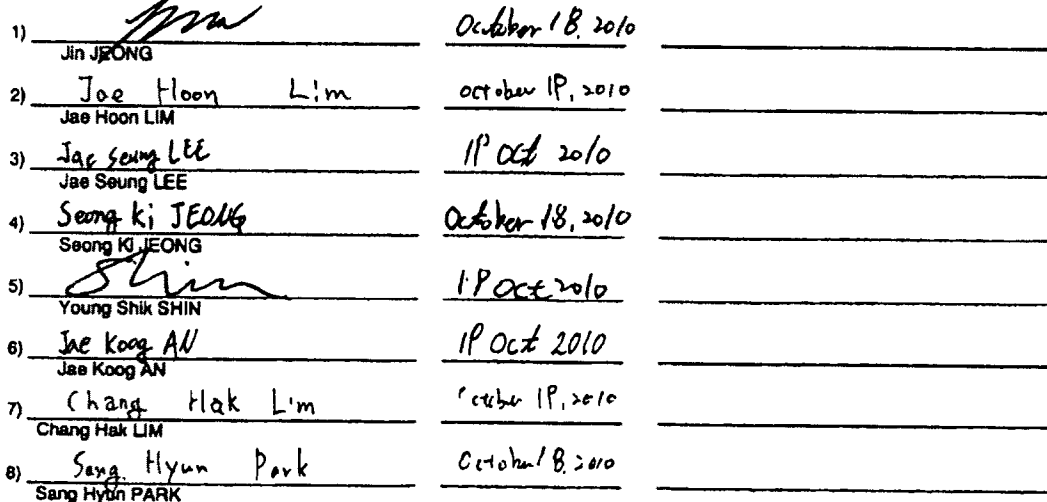 1) October 18, 2010
Jin JEONG
2) Jae Hoon Lim October 18, 2010
Jae Hoon LIM
3) Jae Seung LEE 18 Oct 2010
Jae Seung LEE
4) Seong ki JEONG October 18, 2010
Seong Ki JEONG
5) Shin 18 Oct 2010
Young Shik SHIN
6) Jae Koog AN 18 Oct 2010
Jae Koog AN
7) Chang Hak Lim October 18, 2010
Chang Hak LIM
8) Sang Hyun Park October 18, 2010
Sang Hyun PARK